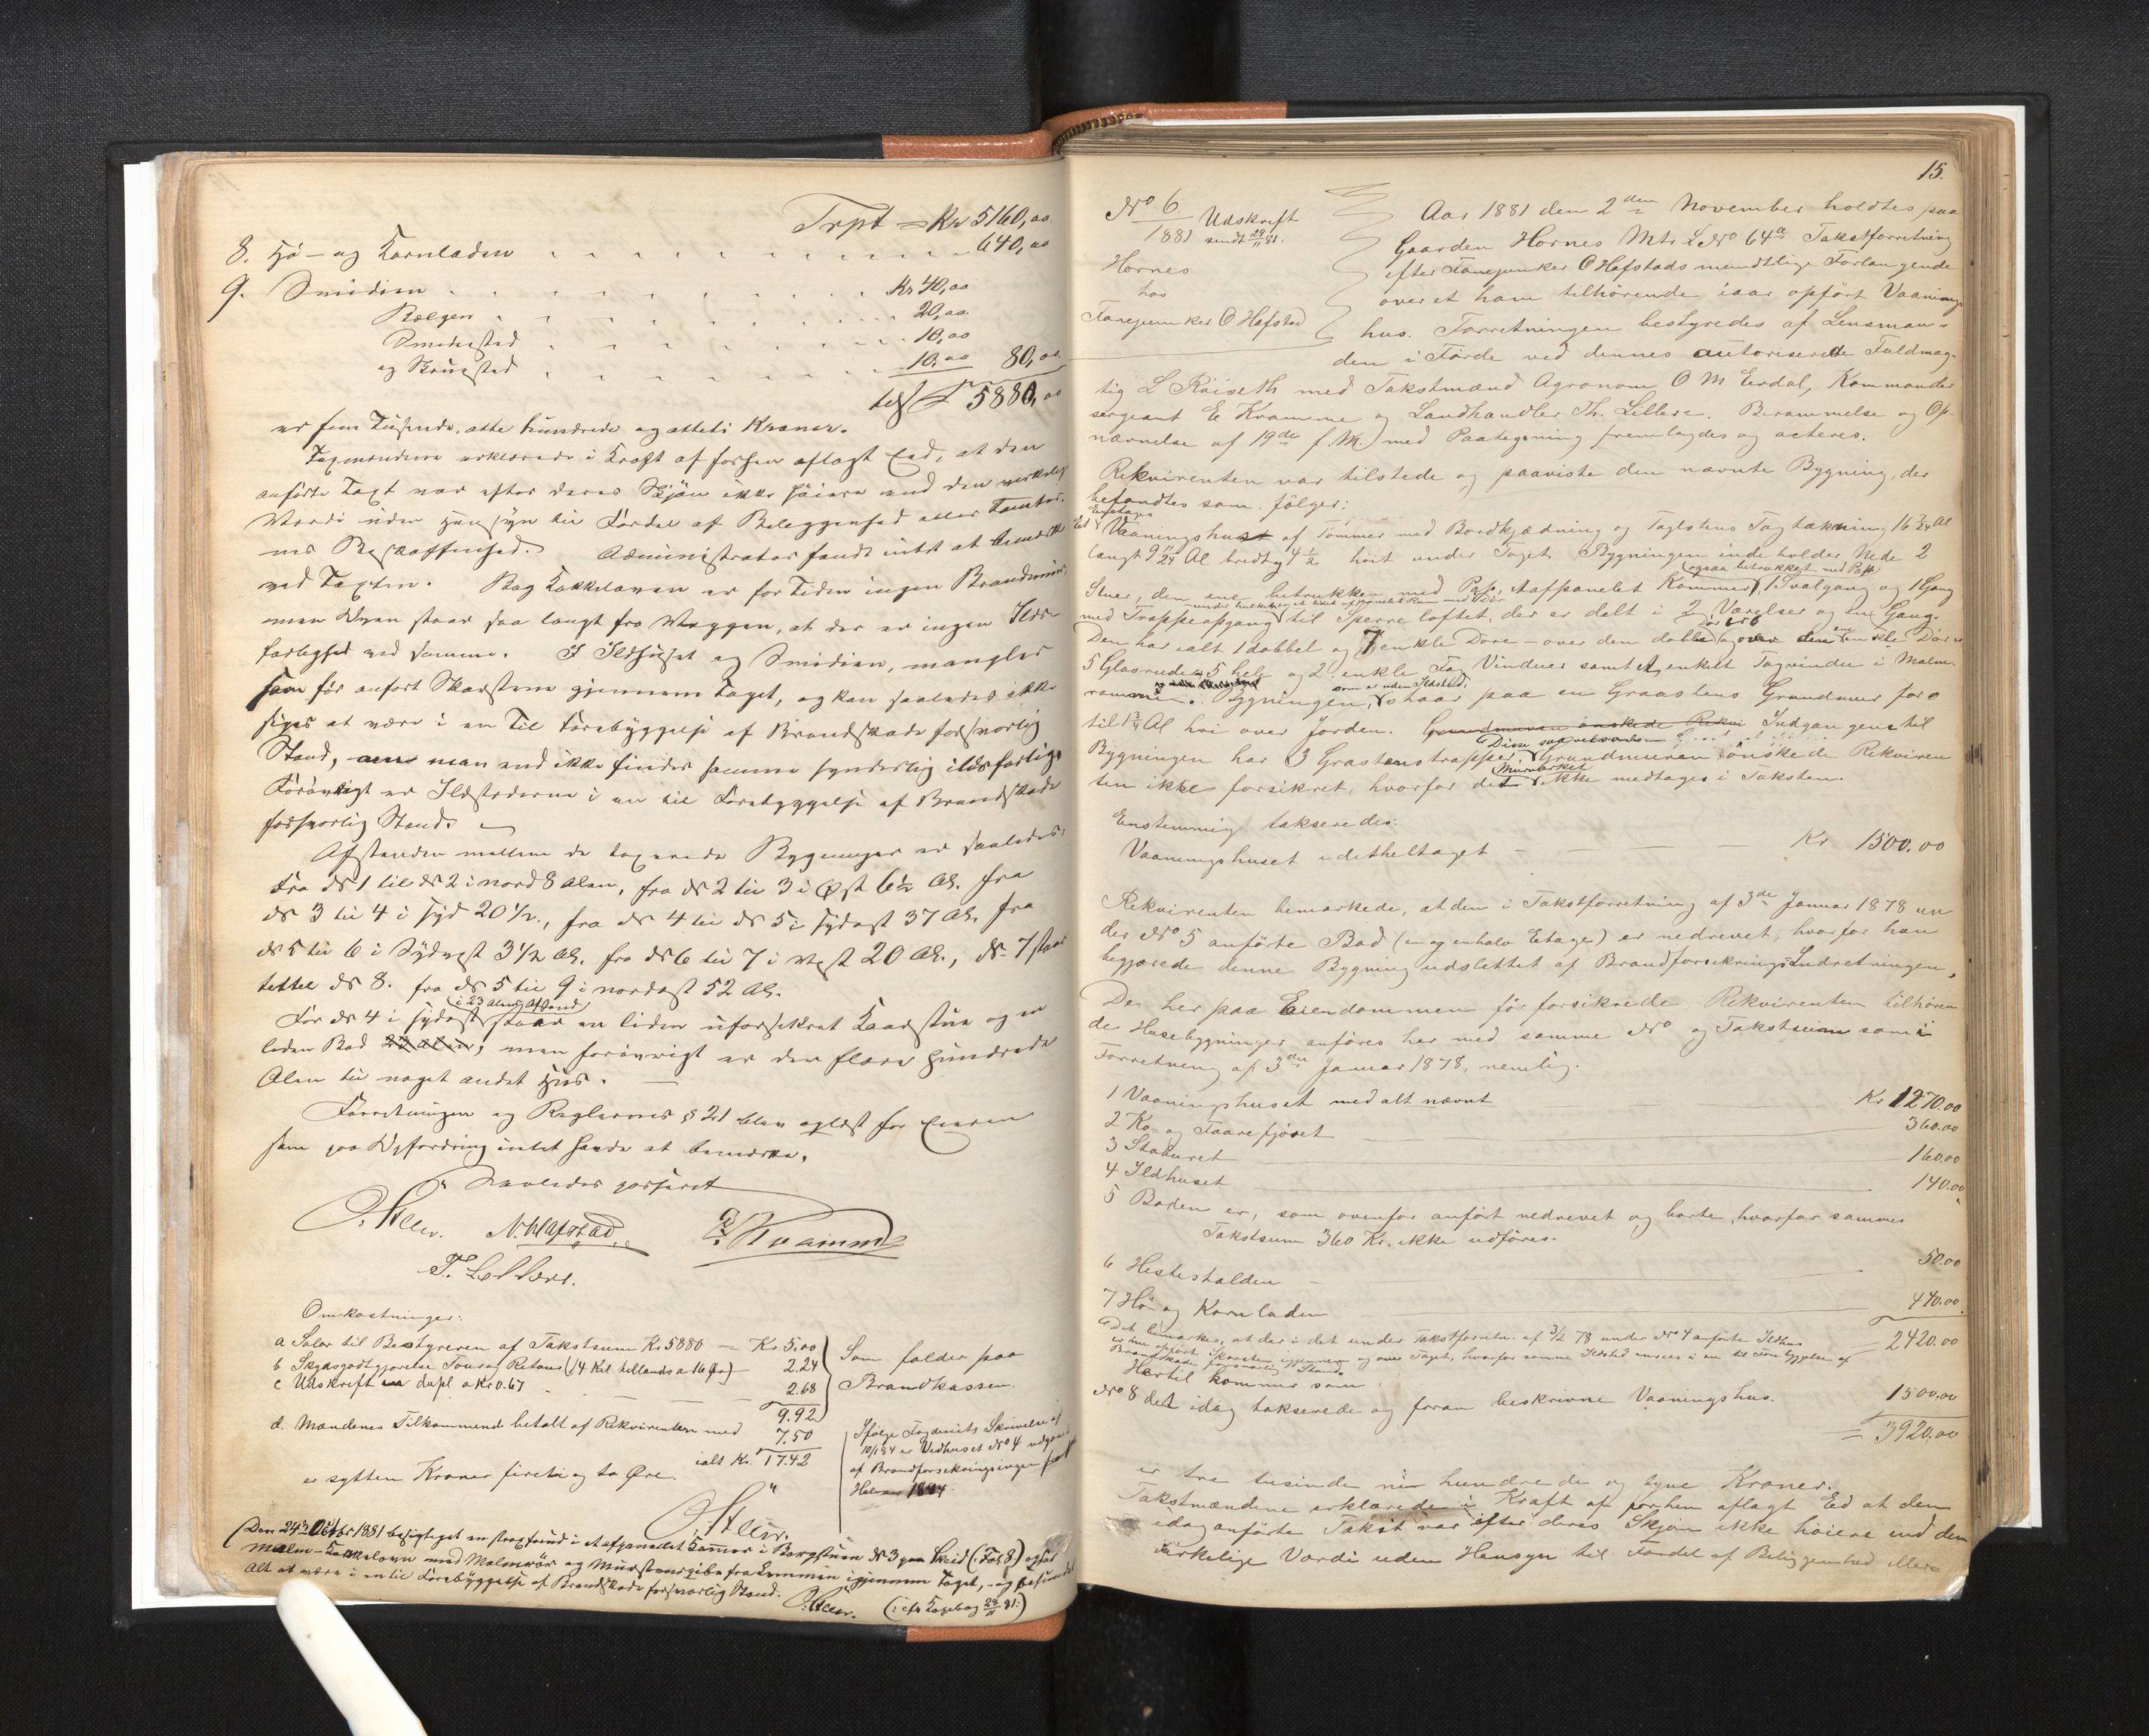 Trpt = Kr 5160,00
8. Hø- og Kornladen 640,00
9. Smidien Kr 40,00
Bælgen 20,00
Smidiested 10,00
og Skruested 10,00 80,00
tils 5880,00
er fem Tusende, otte hundrede og otteti Kroner.
Taxmændene erklærede i Kraft af forhen aflagt Eed, at den
anførte Taxt var efter deres Skjøn ikke høiere end den virkelige
Værdi uden Hensyn til Fordel af Beliggenhed eller Tomter-
nes Beskaffenhed. Administrator fandt intet at bemærke
ved Taxten. Bag Kakkelovnen er for Tiden ingen Brandmur,
men Ovnen staar saa langt fra Væggen, at der er ingen Ilds-
farlighed ved samme. I Ildhuset og Smidien, mangler
som før anført Skorstene gjennem Taget, og kan saaledes ikke
siges at være i en til Forebyggelse af Brandskade forsvarlig
Stand, men man end ikke finder samme synderlig ildsfarlige
Forøvrigt er Ildstederne i en til Forebyggelse af Brandskade
forsvarlig Stand.
Afstanden mellem de taxerede Bygninger er saaledes:
Fra No 1 til No 2 i nord 8 Alen, fra No 2 til 3 i Øst 6½ Al. fra
No 3 til 4 i Syd 20½, fra No 4 til No 5 i Sydost 37 Al. fra
No 5 til 6 i Sydvest 3½ Al. fra No 6 til 7 i Vest 20 Al., No 7 staar
tæt til No 8. fra No 5 til 9 i nordost 52 Al.
(i 23 Alens Afstand)
For No 4 i Sydost staar en liden uforsikret Kaarstue og en
liden Bod 23 Alen, men forøvrigt er der flere Hundrede
Alen til noget andet Huus.
Forretningen og Reglernes § 21 blev oplæst for Eieren
som paa Opfordring intet havde at bemærke.
Saaledes passeret
N. Hafstad E Kvamme
T. Lillere.
Omkostninger:
a Salær til Bestyreren af Takstsum Kr 5880 — Kr 5.00
b Skydsgodtgjørelse Tour og Retour (14 Kil tillands a 16 Øre) — 2.24
c Udskrift in dupl a Kr 0.67 2.68
9.92
Som falder paa
Brandkassen.
d. Mændenes Tilkommende betalt af Rekvirenten med 7.50
ialt Kr. 17.42
er sytten Kroner fireti og to Øre.
Ifølge Fogderiets Skrivelse af
10/1 84 er Vedhuset No 4 udgaaet
af Brandforsikringen fra
1884.
(Den 24de Octbr 1881 besigtiget en i et afpanelet Kammer i Borgstuen No 3 paa Skeid (Fol 8) opsat
Malm-Kakkelovn med Malmrør og Murstenspibe fra Lemmen igjennem Taget, og befundet
alt at være i en til Forebyggelse af Brandskade forsvarlig Stand. (:cfr Dagbog 28/11 81:)
15.
No 6
1881
Udskrift
sendt 29/11 81.
Hornes
hos
Fanejunker O Hafstad
Aar 1881 den 2den November holdtes paa
Gaarden Hornes Mtr L No 64a Takstforretning
efter Fanejunker O Hafstads mundtlige Forlangende
over et ham tilhørende iaar opført Vaanings-
hus. Forretningen bestyredes af Lensman-
den i Førde ved dennes autoriserede Fuldmæg-
tig L Røiseth med Takstmænd Agronom O M Erdal, Kommander
sergeant E Kvamme og Landhandler Th. Lillere. Berammelse og Op-
nævnelse af 19de f. M. med Paategning fremlagdes og acteres.
Rekvirenten var tilstede og paaviste den nævnte Bygning, der
befandtes som følger:
Etages
Et Vaaningshus af Tømmer med Bordklædning og Taglstens Tagtækning 16 3/24 Al
langt 9 11/24 Al bredt og 4½ høit under Taget. Bygningen inde holder Nede 2
(ogsaa betrukket med Pap)
Stuer, den ene betrukken med Pap, et afpanelet Kammer, 1 Svalgang og 1 Gang
med Trappeopgang til Sperre loftet, der er delt i 2 Værelser og en Gang.
Den har ialt 1 dobbel og 7 enkle Døre - over den dobble og over den ene enkle Dør er
5 Glasruder, 5 hele og 2 enkle Fag Vinduer samt et enkelt Tagvindu i Malm-
som er uden Ildsted,
ramme. Bygningen, staar paa en Graastens Grundmur fra 0
til 1¾ Al høi over Jorden. Grundmuren ønskede Rekvi Indgangene til
Bygningen har 3 Graastenstrapper. Grundmuren ønskede Rekviren
Murværket
ten ikke forsikret, hvorfor det ikke medtages i Taksten.
Enstemmig takseredes:
Vaaningshuset i detheltaget — Kr 1500.00
Rekvirenten bemærkede, at den i Takstforretning af 3de Januar 1878 un
der No 5 anførte Bod (en og enhalv Etage) er nedrevet, hvorfor han
begjærede denne Bygning udslettet af Brandforsikrings Indretningen.
De her paa Eiendommen før forsikrede Rekvirenten tilhøren
de Husebygninger anføres her med samme No og Takstsum som i
Forretning af 3die Januar 1878, nemlig:
1 Vaaningshuset med alt nævnt Kr 1270.00
2 Ko- og Faarefjøset 360.00
3 Staburet 160.00
4 Ildhuset 140.00
5 Boden er, som ovenfor anført nedrevet og borte, hvorfor sammes
Takstsum 360 Kr. ikke udføres.
6 Hestestalden 50.00
7 Hø og Kornladen 440.00
= 2420.00
Det bemærkes, at der i det under Takstforretn. af 3/1 78 under No 4 anførte Ildhus
er nu opført Skorsten igjennem og over Taget, hvorfor samme Ildsted ansees i en til Fore byggelse af
Brandskade forsvarlig Stand.
Hertil kommer som
No 8 det idag takserede og foran beskrivne Vaaningshus. 1500.00
= 3920.00
er tre tusinde ni hundrede og tyve Kroner.
Takstmændene erklærede i Kraft af forhen aflagt Ed at den
idag anførte Takst var efter deres Skjøn ikke høiere end den
virkelige Værdi uden Hensyn til Fordel af Beliggenhed eller